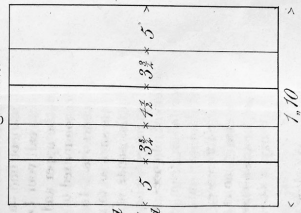 5 × 3¾ × 4½ × 3¾ × 5 >
< 1,,10 >